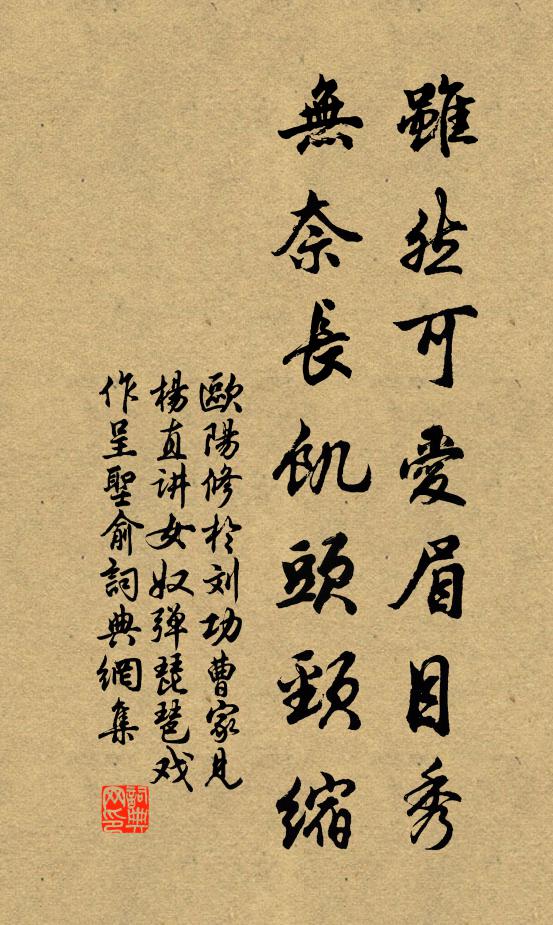 雖然可愛眉目秀
無奈長飢頭頸縮
歐陽修於刘功曹家見
楊直讲女奴弹琵琶戏
作呈聖俞詞典網集
詞典网印